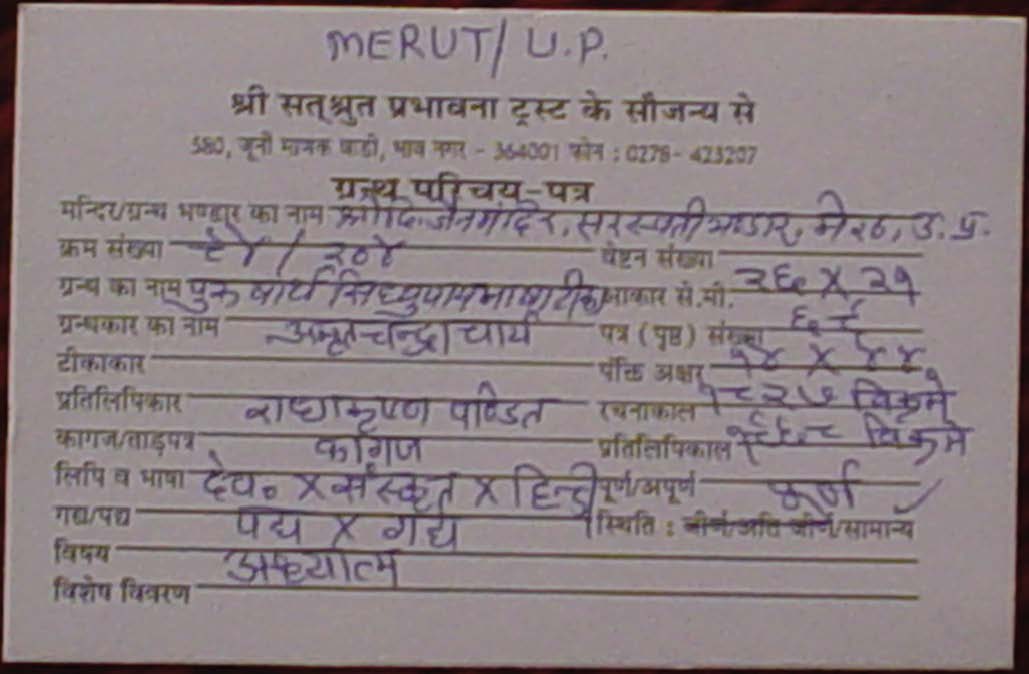 MERUT/ U.P.
श्री सत्श्रुत प्रभावना ट्रस्ट के सौजन्य से
580, जूनी माणक वाडी, भाव नगर - 364001 फोन : 0278- 423207
ग्रन्थ परिचय-पत्र
मन्दिर/ग्रन्थ भण्डार का नाम श्री दि. जैन मंदिर, सरस्वती भण्डार, मेरठ, उ. प्र.
क्रम संख्या / २०४ वेष्टन संख्या
ग्रन्थ का नाम पुरुषार्थ सिध्युपाय भाषा टीका आकार से.मी. २६ X २१
ग्रन्थकार का नाम अमृतचन्द्राचार्य पत्र (पृष्ठ) संख्या ६८
टीकाकार पंक्ति अक्षर १४ X ४४
प्रतिलिपिकार राधाकृष्ण पण्डित रचनाकाल १८२७ विक्रमे
कागज/ताड़पत्र कागज प्रतिलिपिकाल १९६८ विक्रमे
लिपि व भाषा देव० X संस्कृत X हिन्दी पूर्ण/अपूर्ण पूर्ण
गद्य/पद्य पद्य X गद्य स्थिति : जीर्ण/अति जीर्ण/सामान्य
विषय अध्यात्म
विशेष विवरण